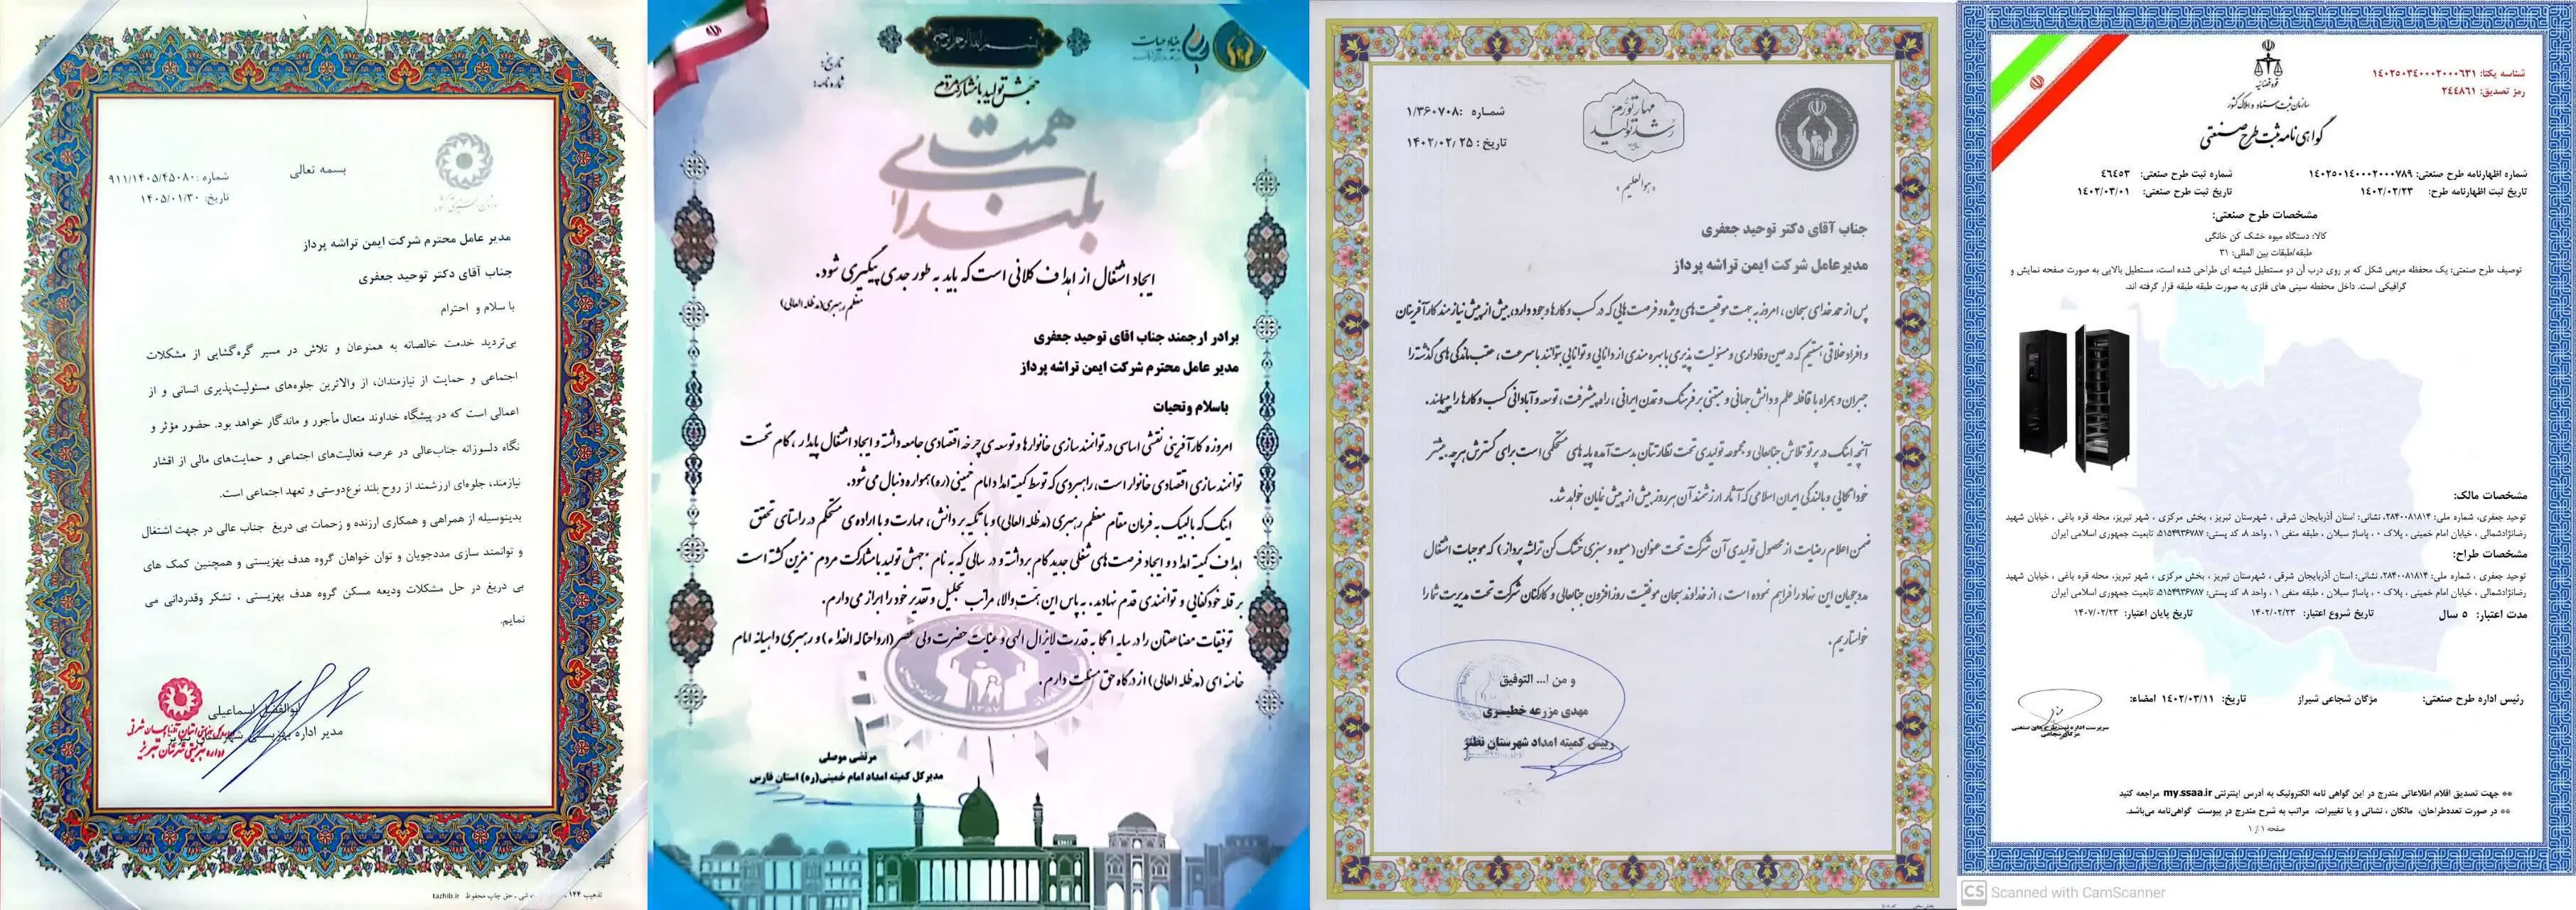 بسمه تعالی
شماره : ۹۱۱/۱۴۰۵/۴۵۰۸۰
تاریخ: ۱۴۰۵/۰۱/۳۰
مدیر عامل محترم شرکت ایمن تراشه پرداز
جناب آقای دکتر توحید جعفری
با سلام و احترام
بی‌تردید خدمت خالصانه به همنوعان و تلاش در مسیر گره‌گشایی از مشکلات
اجتماعی و حمایت از نیازمندان، از والاترین جلوه‌های مسئولیت‌پذیری انسانی و از
اعمالی است که در پیشگاه خداوند متعال مأجور و ماندگار خواهد بود. حضور مؤثر و
نگاه دلسوزانه جناب‌عالی در عرصه فعالیت‌های اجتماعی و حمایت‌های مالی از اقشار
نیازمند، جلوه‌ای ارزشمند از روح بلند نوع‌دوستی و تعهد اجتماعی است.
بدینوسیله از همراهی و همکاری ارزنده و زحمات بی دریغ جناب عالی در جهت اشتغال
و توانمند سازی مددجویان و توان خواهان گروه هدف بهزیستی و همچنین کمک های
بی دریغ در حل مشکلات ودیعه مسکن گروه هدف بهزیستی ، تشکر وقدردانی می
نمایم.
ابوالفضل اسماعیلی
مدیر اداره بهزیستی
tazhib.ir
بنیاد حیات
تاریخ:
شماره نامه:
جهش تولید با مشارکت مردم
همت های بلند
ایجاد اشتغال از اهداف کلانی است که باید به طور جدی پیگیری شود.
معظم رهبری(مدظله العالی)
برادر ارجمند جناب اقای توحید جعفری
مدیر عامل محترم شرکت ایمن تراشه پرداز
باسلام وتحیات
امروزه کارآفرینی نقشی اساسی در توانمند سازی خانوارها و توسعه ی چرخه اقتصادی جامعه داشته و ایجاد اشتغال پایدار ، گام نخست
توانمند سازی اقتصادی خانوار است، راهبردی که توسط کمیته امداد امام خمینی (ره) همواره دنبال می شود.
اینک که با لبیک به فرمان مقام معظم رهبری (مدظله العالی) و با تکیه بر دانش، مهارت و با اراده ی مستحکم در راستای تحقق
اهداف کمیته امداد و ایجاد فرصت های شغلی جدید گام برداشته و در سالی که به نام "جهش تولید با مشارکت مردم" مزین گشته است
بر قله خودکفایی و توانمندی قدم نهادید، به پاس این همت والا، مراتب تجلیل و تقدیر خود را ابراز می دارم.
توفیقات مضاعفتان را در سایه اتکا به قدرت لایزال الهی و عنایت حضرت ولی عصر (ارواحناله الفداء) و رهبری داهیانه امام
خامنه ای (مدظله العالی) از درگاه حق مسئلت دارم.
مرتضی موصلی
مدیرکل کمیته امداد امام خمینی(ره) استان فارس
مهار تورم
رشد تولید
شماره :۱/۳۶۰۷۰۸
تاریخ : ۱۴۰۲/۰۲/۲۵
«هوالعلیم»
جناب آقای دکتر توحید جعفری
مدیرعامل شرکت ایمن تراشه پرداز
پس از حمد خدای سبحان ، امروزه به جهت موقعیت های ویژه و فرصت هایی که در کسب و کارها وجود دارد، بیش از پیش نیازمند کارآفرینان
و افراد خلاقی هستیم که در عین وفاداری و مسئولیت پذیری با بهره مندی از دانایی و توانایی بتوانند با سرعت ، عقب ماندگی های گذشته را
جبران و همراه با قافله علم و دانش جهانی و مبتنی بر فرهنگ و تمدن ایرانی ، راه پیشرفت ، توسعه و آبادانی کسب و کارها را بپیمایند .
آنچه اینک در پرتو تلاش جنابعالی و مجموعه تولیدی تحت نظارتتان بدست آمده پایه های مستحکمی است برای گسترش هر چه بیشتر
خوداتکایی و بالندگی ایران اسلامی که آثار ارزشمند آن هر روز بیش از پیش نمایان خواهد شد.
ضمن اعلام رضایت از محصول تولیدی آن شرکت تحت عنوان (میوه و سبزی خشک کن تراشه پرداز) که موجبات اشتغال
مددجویان این نهاد را فراهم نموده است ، از خداوند سبحان موفقیت روزافزون جنابعالی و کارکنان شرکت تحت مدیریت شما را
خواستاریم.
و من ا... التوفیق
مهدی مزرعه خطیری
رییس کمیته امداد شهرستان نطنز
شناسه یکتا: ۱۴۰۲۵۰۳۴۰۰۰۲۰۰۰۶۳۱
رمز تصدیق: ۲۴۴۸۶۱
قوه قضائیه
سازمان ثبت اسناد و املاک کشور
گواهی نامه ثبت طرح صنعتی
شماره اظهارنامه طرح صنعتی: ۱۴۰۲۵۰۱۴۰۰۰۲۰۰۰۷۸۹
شماره ثبت طرح صنعتی: ۴۶۴۵۳
تاریخ ثبت اظهارنامه طرح: ۱۴۰۲/۰۲/۲۳
تاریخ ثبت طرح صنعتی: ۱۴۰۲/۰۳/۰۱
مشخصات طرح صنعتی:
کالا: دستگاه میوه خشک کن خانگی
طبقه/طبقات بین المللی: ۳۱
توصیف طرح صنعتی: یک محفظه مربعی شکل که بر روی درب آن دو مستطیل شیشه ای طراحی شده است، مستطیل بالایی به صورت صفحه نمایش و
گرافیکی است. داخل محفظه سینی های فلزی به صورت طبقه طبقه قرار گرفته اند.
مشخصات مالک:
توحید جعفری، شماره ملی: ۲۸۴۰۰۸۱۸۱۴، نشانی: استان آذربایجان شرقی ، شهرستان تبریز ، بخش مرکزی ، شهر تبریز، محله قره باغی ، خیابان شهید
رضانژادشمالی ، خیابان امام خمینی ، پلاک ۰ ، پاساژ سبلان ، طبقه منفی ۱ ، واحد ۸، کد پستی: ۵۱۵۴۹۳۶۷۸۷، تابعیت جمهوری اسلامی ایران
مشخصات طراح:
توحید جعفری ، شماره ملی: ۲۸۴۰۰۸۱۸۱۴، نشانی: استان آذربایجان شرقی ، شهرستان تبریز ، بخش مرکزی ، شهر تبریز، محله قره باغی ، خیابان شهید
رضانژادشمالی ، خیابان امام خمینی ، پلاک ۰ ، پاساژ سبلان ، طبقه منفی ۱ ، واحد ۸، کد پستی: ۵۱۵۴۹۳۶۷۸۷، تابعیت جمهوری اسلامی ایران
مدت اعتبار: ۵ سال
تاریخ شروع اعتبار: ۱۴۰۲/۰۲/۲۳
تاریخ پایان اعتبار: ۱۴۰۷/۰۲/۲۳
رئیس اداره طرح صنعتی:
مژگان شجاعی شیراز
تاریخ: ۱۴۰۲/۰۳/۱۱
امضاء:
** جهت تصدیق اقلام اطلاعاتی مندرج در این گواهی نامه الکترونیک به آدرس اینترنتی my.ssaa.ir مراجعه کنید
** در صورت تعددطراحان، مالکان ، نشانی و یا تغییرات، مراتب به شرح مندرج در پیوست گواهی‌نامه می‌باشد.
صفحه ۱ از ۱
CS Scanned with CamScanner